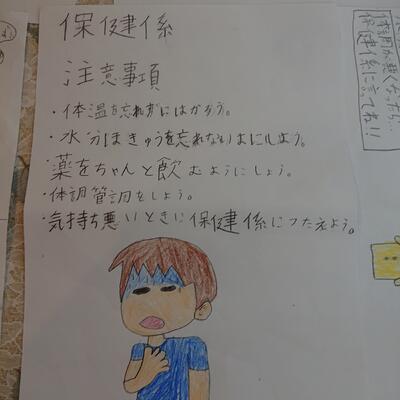 保健係
注意事項
・体温を忘れずにはかろう。
・水分ほきゅうを忘れないよにしよう。
・薬をちゃんと飲むようにしよう。
・体調管調をしよう。
・気持ち悪いときに保健係につたえよう。
悪くなったら…
保健係に言ってね!!